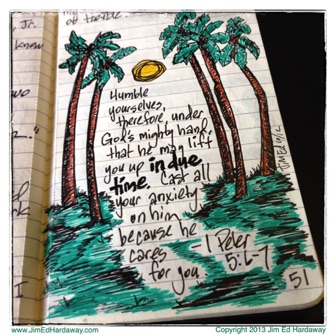 Jr.
knew
Humble
yourselves,
therefore, under
God's mighty hand,
that he may lift
you up in due
time. Cast all
your anxiety
on him
because he
cares
for you
-1 Peter
5:6-7
51
www.JimEdHardaway.com
Copyright 2013 Jim Ed Hardaway